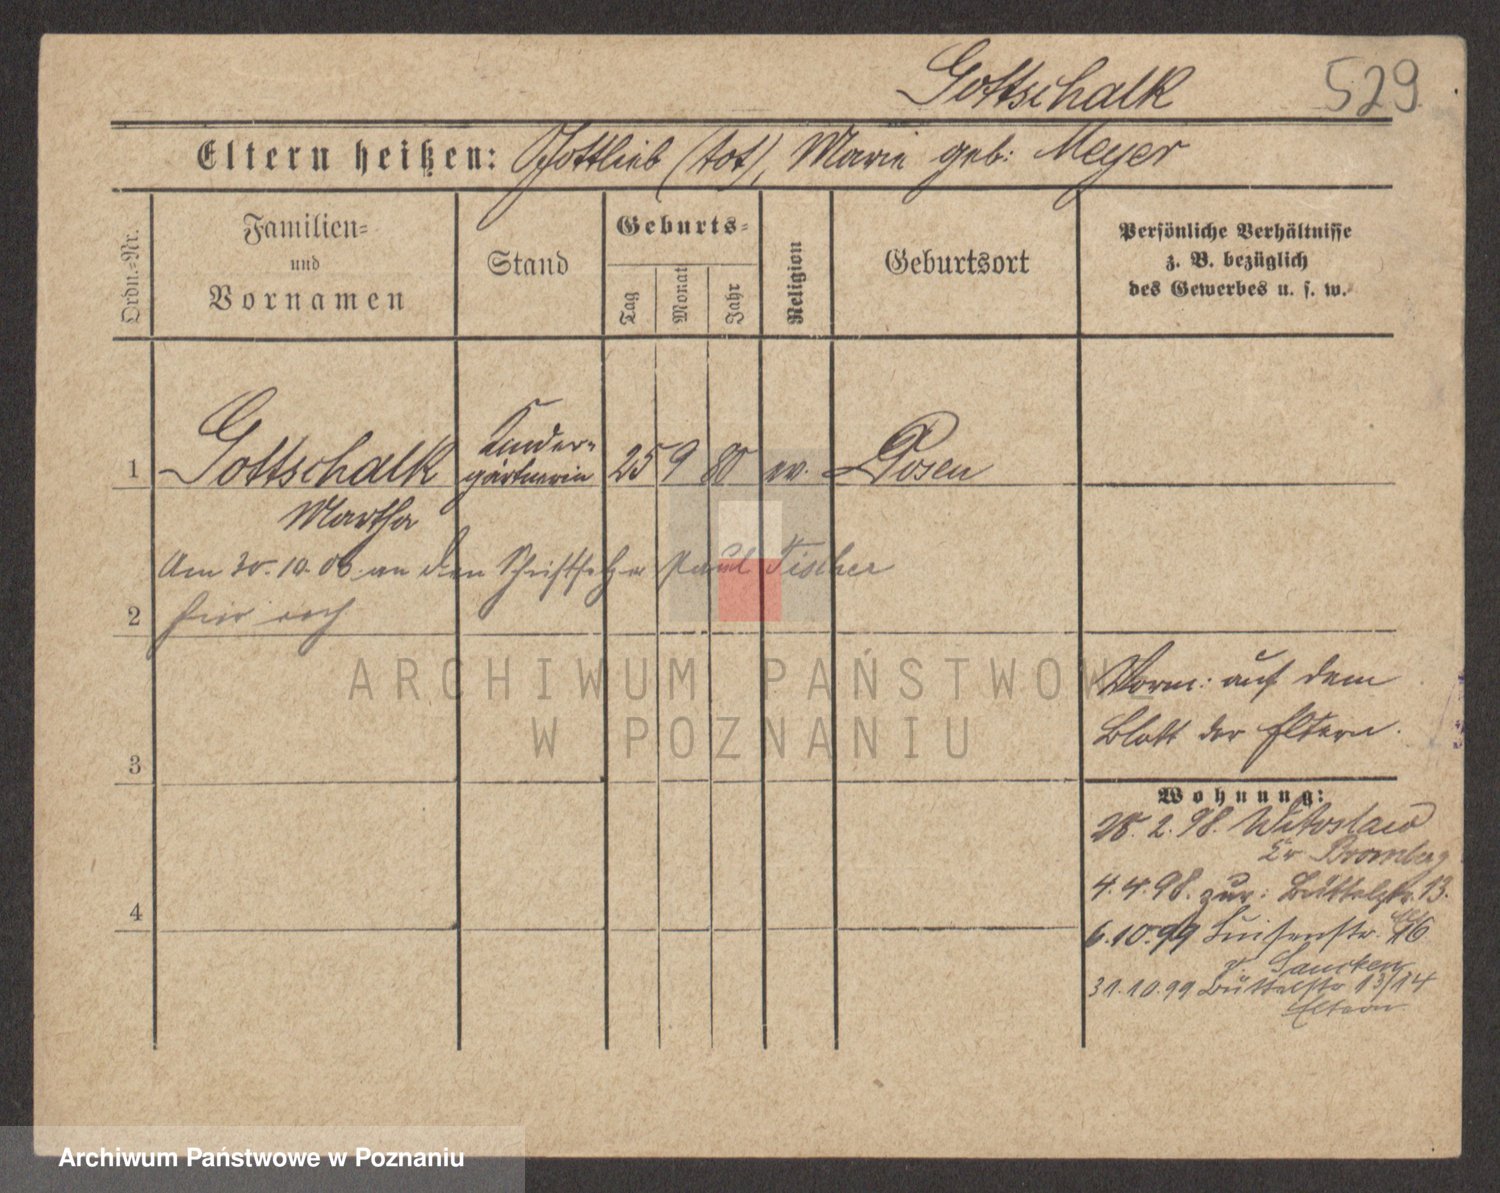 Gottschalk 529
Eltern heißen: Gottlieb (tot), Marie geb: Meyer
Ordn.-Nr.
Familien-
und
Vornamen
Stand
Geburts-
Tag
Monat
Jahr
Religion
Geburtsort
Persönliche Verhältnisse
z. B. bezüglich
des Gewerbes u. s. w.
1 Gottschalk Kinder-
gärtnerin 25 9 80 ev. Posen
Martha
Am 30.10.06 an den Schriftsetzer Paul Fischer
hier verh
2
ARCHIWUM PAŃSTWOWE
W POZNANIU
Verm: auf dem
Blatt der Eltern.
3
Wohnung:
28.2.98. Witoslaw
Kr Bromberg
4.4.98. zur: Büttelstr. 13.
4
6.10.99 Luisenstr. 16
v.
31.10.99 Büttelstr 13/14
Eltern
Archiwum Państwowe w Poznaniu